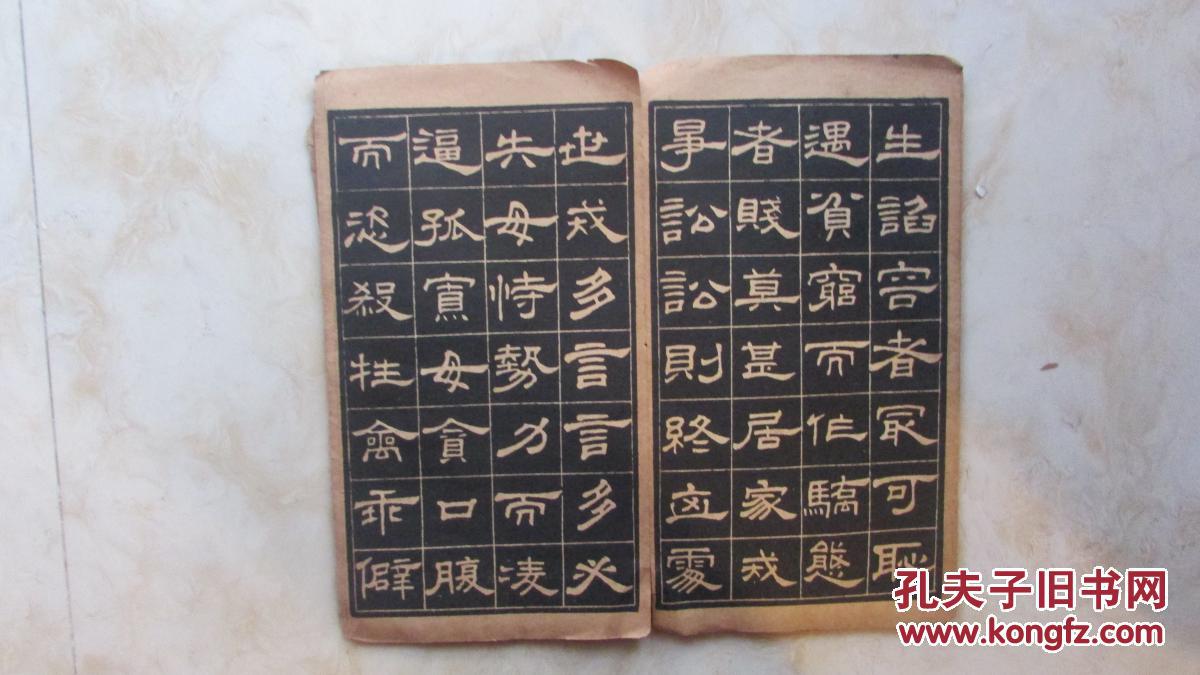 生諂容者冣可恥
遇貧窮而作驕態
者賤莫甚居家戒
爭訟訟則終凶處
世戒多言言多必
失毋恃勢力而凌
逼孤寡毋貪口腹
而恣殺牲禽乖僻
孔夫子旧书网
www.kongfz.com